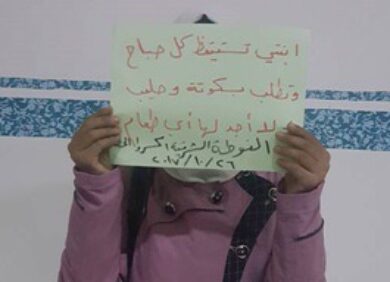 ابنتي تستيقظ كل صباح
وتطلب بسكوتة وحليب
ولا أجد لها أي طعام
الغوطة الشرقية اكسروا الـ
٢٠١٧/١٠/٢٦